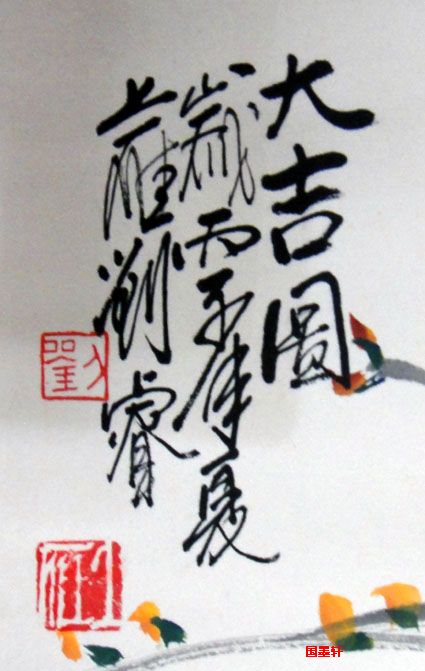 大吉圖
歲丙子年夏
上雒劉睿
劉
国墨轩